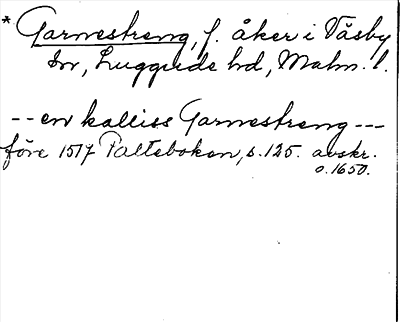 * Garnestreng, f. åker i Väsby
sn, Luggude hd, Malm. l.
-- en kalliss Garnestreng ---
före 1517 Paltebokon, s. 125. avskr.
o. 1650.